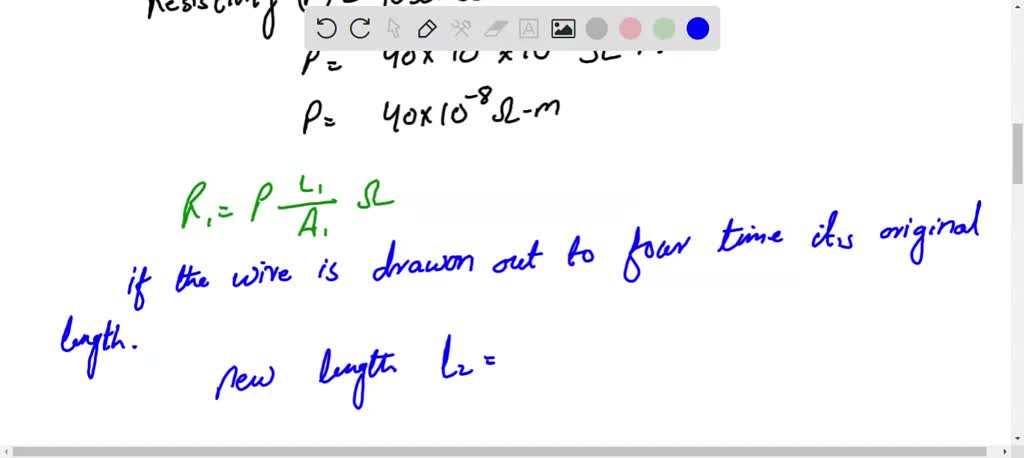 Resistivity (P) =
P = 40×10 ×10 Ω
P = 40×10⁻⁸ Ω-m
R₁ = P L₁/A₁ Ω
if the wire is drawon out to four time it,s original
length.
new length L₂ =